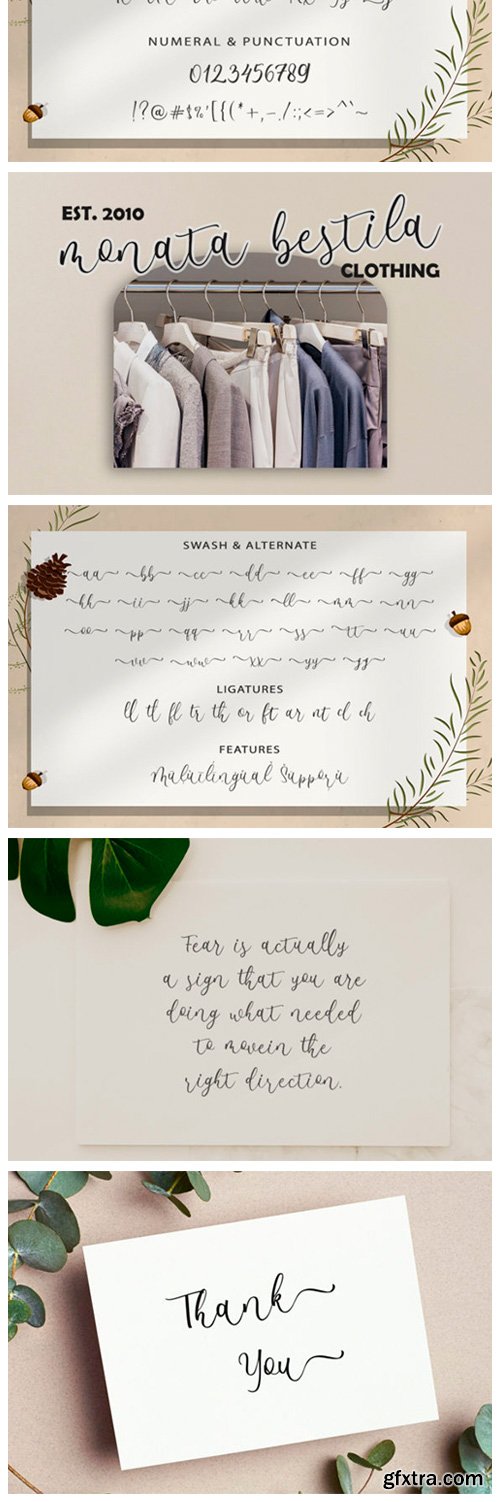 NUMERAL & PUNCTUATION
0123456789
!?@#$%'[{(*+,-./:;<=>^`~
EST. 2010
monata bestila
CLOTHING
SWASH & ALTERNATE
aa bb cc dd ee ff gg
hh ii jj kk ll mm nn
oo pp qq rr ss tt uu
vv ww xx yy zz
LIGATURES
ll tl fl tr th or ft ar nt el ch
FEATURES
Mulitilingual Support
Fear is actually
a sign that you are
doing what needed
to movein the
right direction.
Thank
You
gfxtra.com